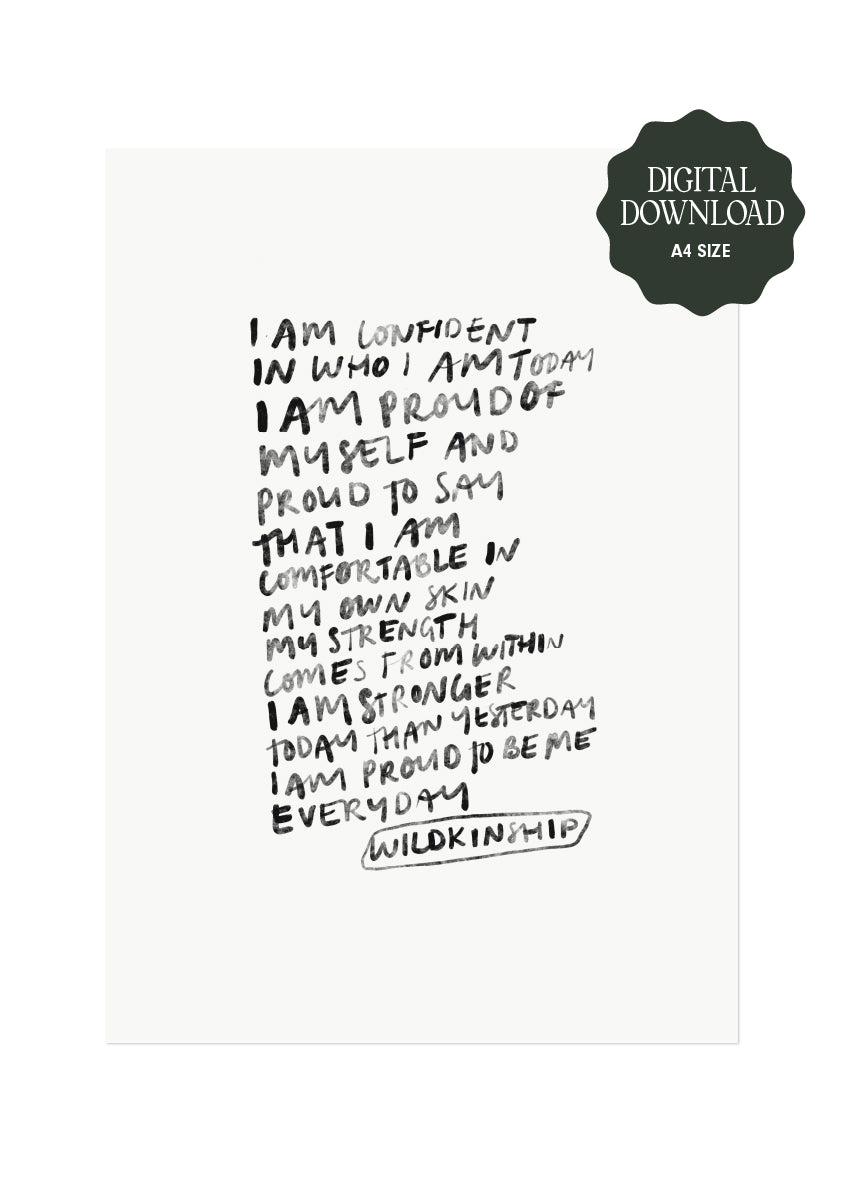 DIGITAL
DOWNLOAD
A4 SIZE
I AM CONFIDENT
IN WHO I AM TODAY
I AM PROUD OF
MYSELF AND
PROUD TO SAY
THAT I AM
COMFORTABLE IN
MY OWN SKIN
MY STRENGTH
COMES FROM WITHIN
I AM STRONGER
TODAY THAN YESTERDAY
I AM PROUD TO BE ME
EVERYDAY
WILDKINSHIP